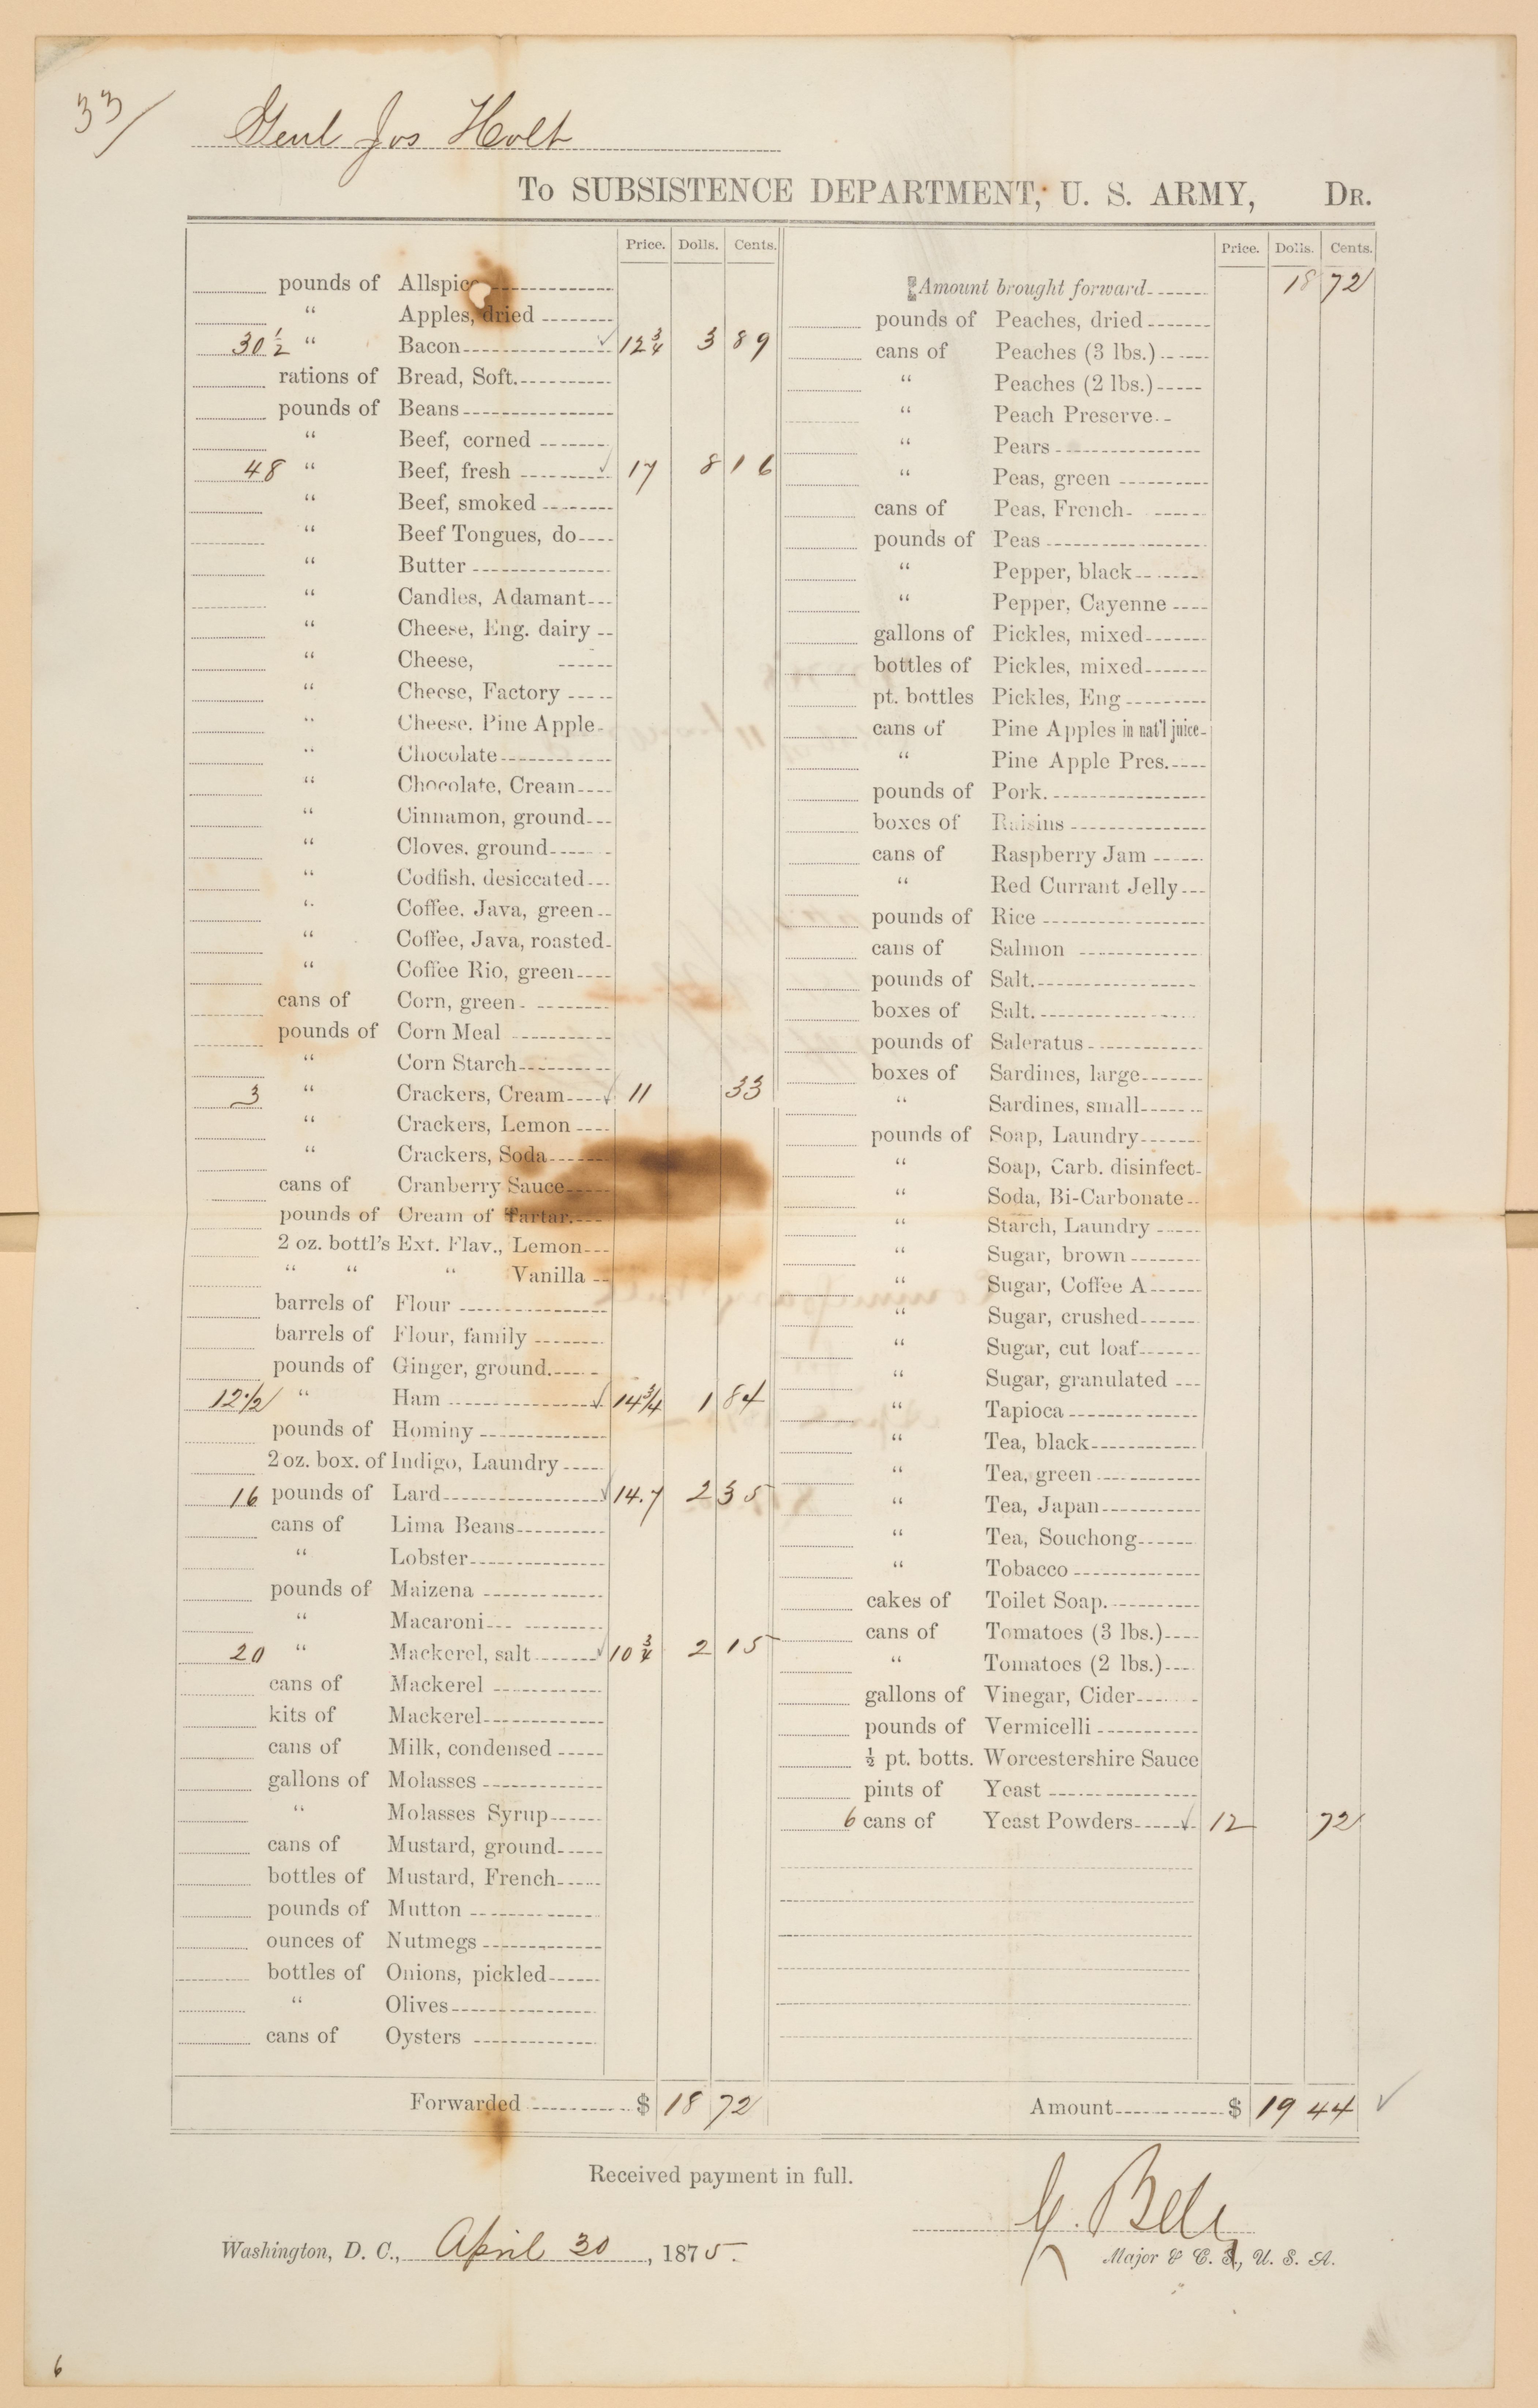 33/
Genl Jos Holt
To SUBSISTENCE DEPARTMENT, U. S. ARMY, DR.
Price. Dolls. Cents.
pounds of Allspice
“ Apples, dried
30 1/2 “ Bacon ✓ 12 3/4 3 89
rations of Bread, Soft.
pounds of Beans
“ Beef, corned
48 “ Beef, fresh ✓ 17 8 16
“ Beef, smoked
“ Beef Tongues, do
“ Butter
“ Candles, Adamant
“ Cheese, Eng. dairy
“ Cheese,
“ Cheese, Factory
“ Cheese, Pine Apple
“ Chocolate
“ Chocolate, Cream
“ Cinnamon, ground
“ Cloves, ground
“ Codfish, desiccated
“ Coffee, Java, green
“ Coffee, Java, roasted
“ Coffee Rio, green
cans of Corn, green
pounds of Corn Meal
“ Corn Starch
3 “ Crackers, Cream ✓ 11 33
“ Crackers, Lemon
“ Crackers, Soda
cans of Cranberry Sauce
pounds of Cream of Tartar.
2 oz. bottl's Ext. Flav., Lemon
“ “ “ Vanilla
barrels of Flour
barrels of Flour, family
pounds of Ginger, ground.
12 1/2 “ Ham ✓ 14 3/4 1 84
pounds of Hominy
2 oz. box. of Indigo, Laundry
16 pounds of Lard ✓ 14.7 2 35
cans of Lima Beans
“ Lobster
pounds of Maizena
“ Macaroni
20 “ Mackerel, salt ✓ 10 3/4 2 15
cans of Mackerel
kits of Mackerel
cans of Milk, condensed
gallons of Molasses
“ Molasses Syrup
cans of Mustard, ground
bottles of Mustard, French
pounds of Mutton
ounces of Nutmegs
bottles of Onions, pickled
“ Olives
cans of Oysters
Forwarded $ 18 72
Price. Dolls. Cents.
Amount brought forward 18 72
pounds of Peaches, dried
cans of Peaches (3 lbs.)
“ Peaches (2 lbs.)
“ Peach Preserve
“ Pears
“ Peas, green
cans of Peas, French
pounds of Peas
“ Pepper, black
“ Pepper, Cayenne
gallons of Pickles, mixed
bottles of Pickles, mixed
pt. bottles Pickles, Eng
cans of Pine Apples in nat'l juice
“ Pine Apple Pres.
pounds of Pork.
boxes of Raisins
cans of Raspberry Jam
“ Red Currant Jelly
pounds of Rice
cans of Salmon
pounds of Salt.
boxes of Salt.
pounds of Saleratus
boxes of Sardines, large
“ Sardines, small
pounds of Soap, Laundry
“ Soap, Carb. disinfect
“ Soda, Bi-Carbonate
“ Starch, Laundry
“ Sugar, brown
“ Sugar, Coffee A
“ Sugar, crushed
“ Sugar, cut loaf
“ Sugar, granulated
“ Tapioca
“ Tea, black
“ Tea, green
“ Tea, Japan
“ Tea, Souchong
“ Tobacco
cakes of Toilet Soap.
cans of Tomatoes (3 lbs.)
“ Tomatoes (2 lbs.)
gallons of Vinegar, Cider
pounds of Vermicelli
½ pt. botts. Worcestershire Sauce
pints of Yeast
6 cans of Yeast Powders ✓ 12 72
Amount $ 19 44 ✓
Received payment in full.
G. Bell
Washington, D. C., April 30, 1875.
Major & C. S., U. S. A.
6